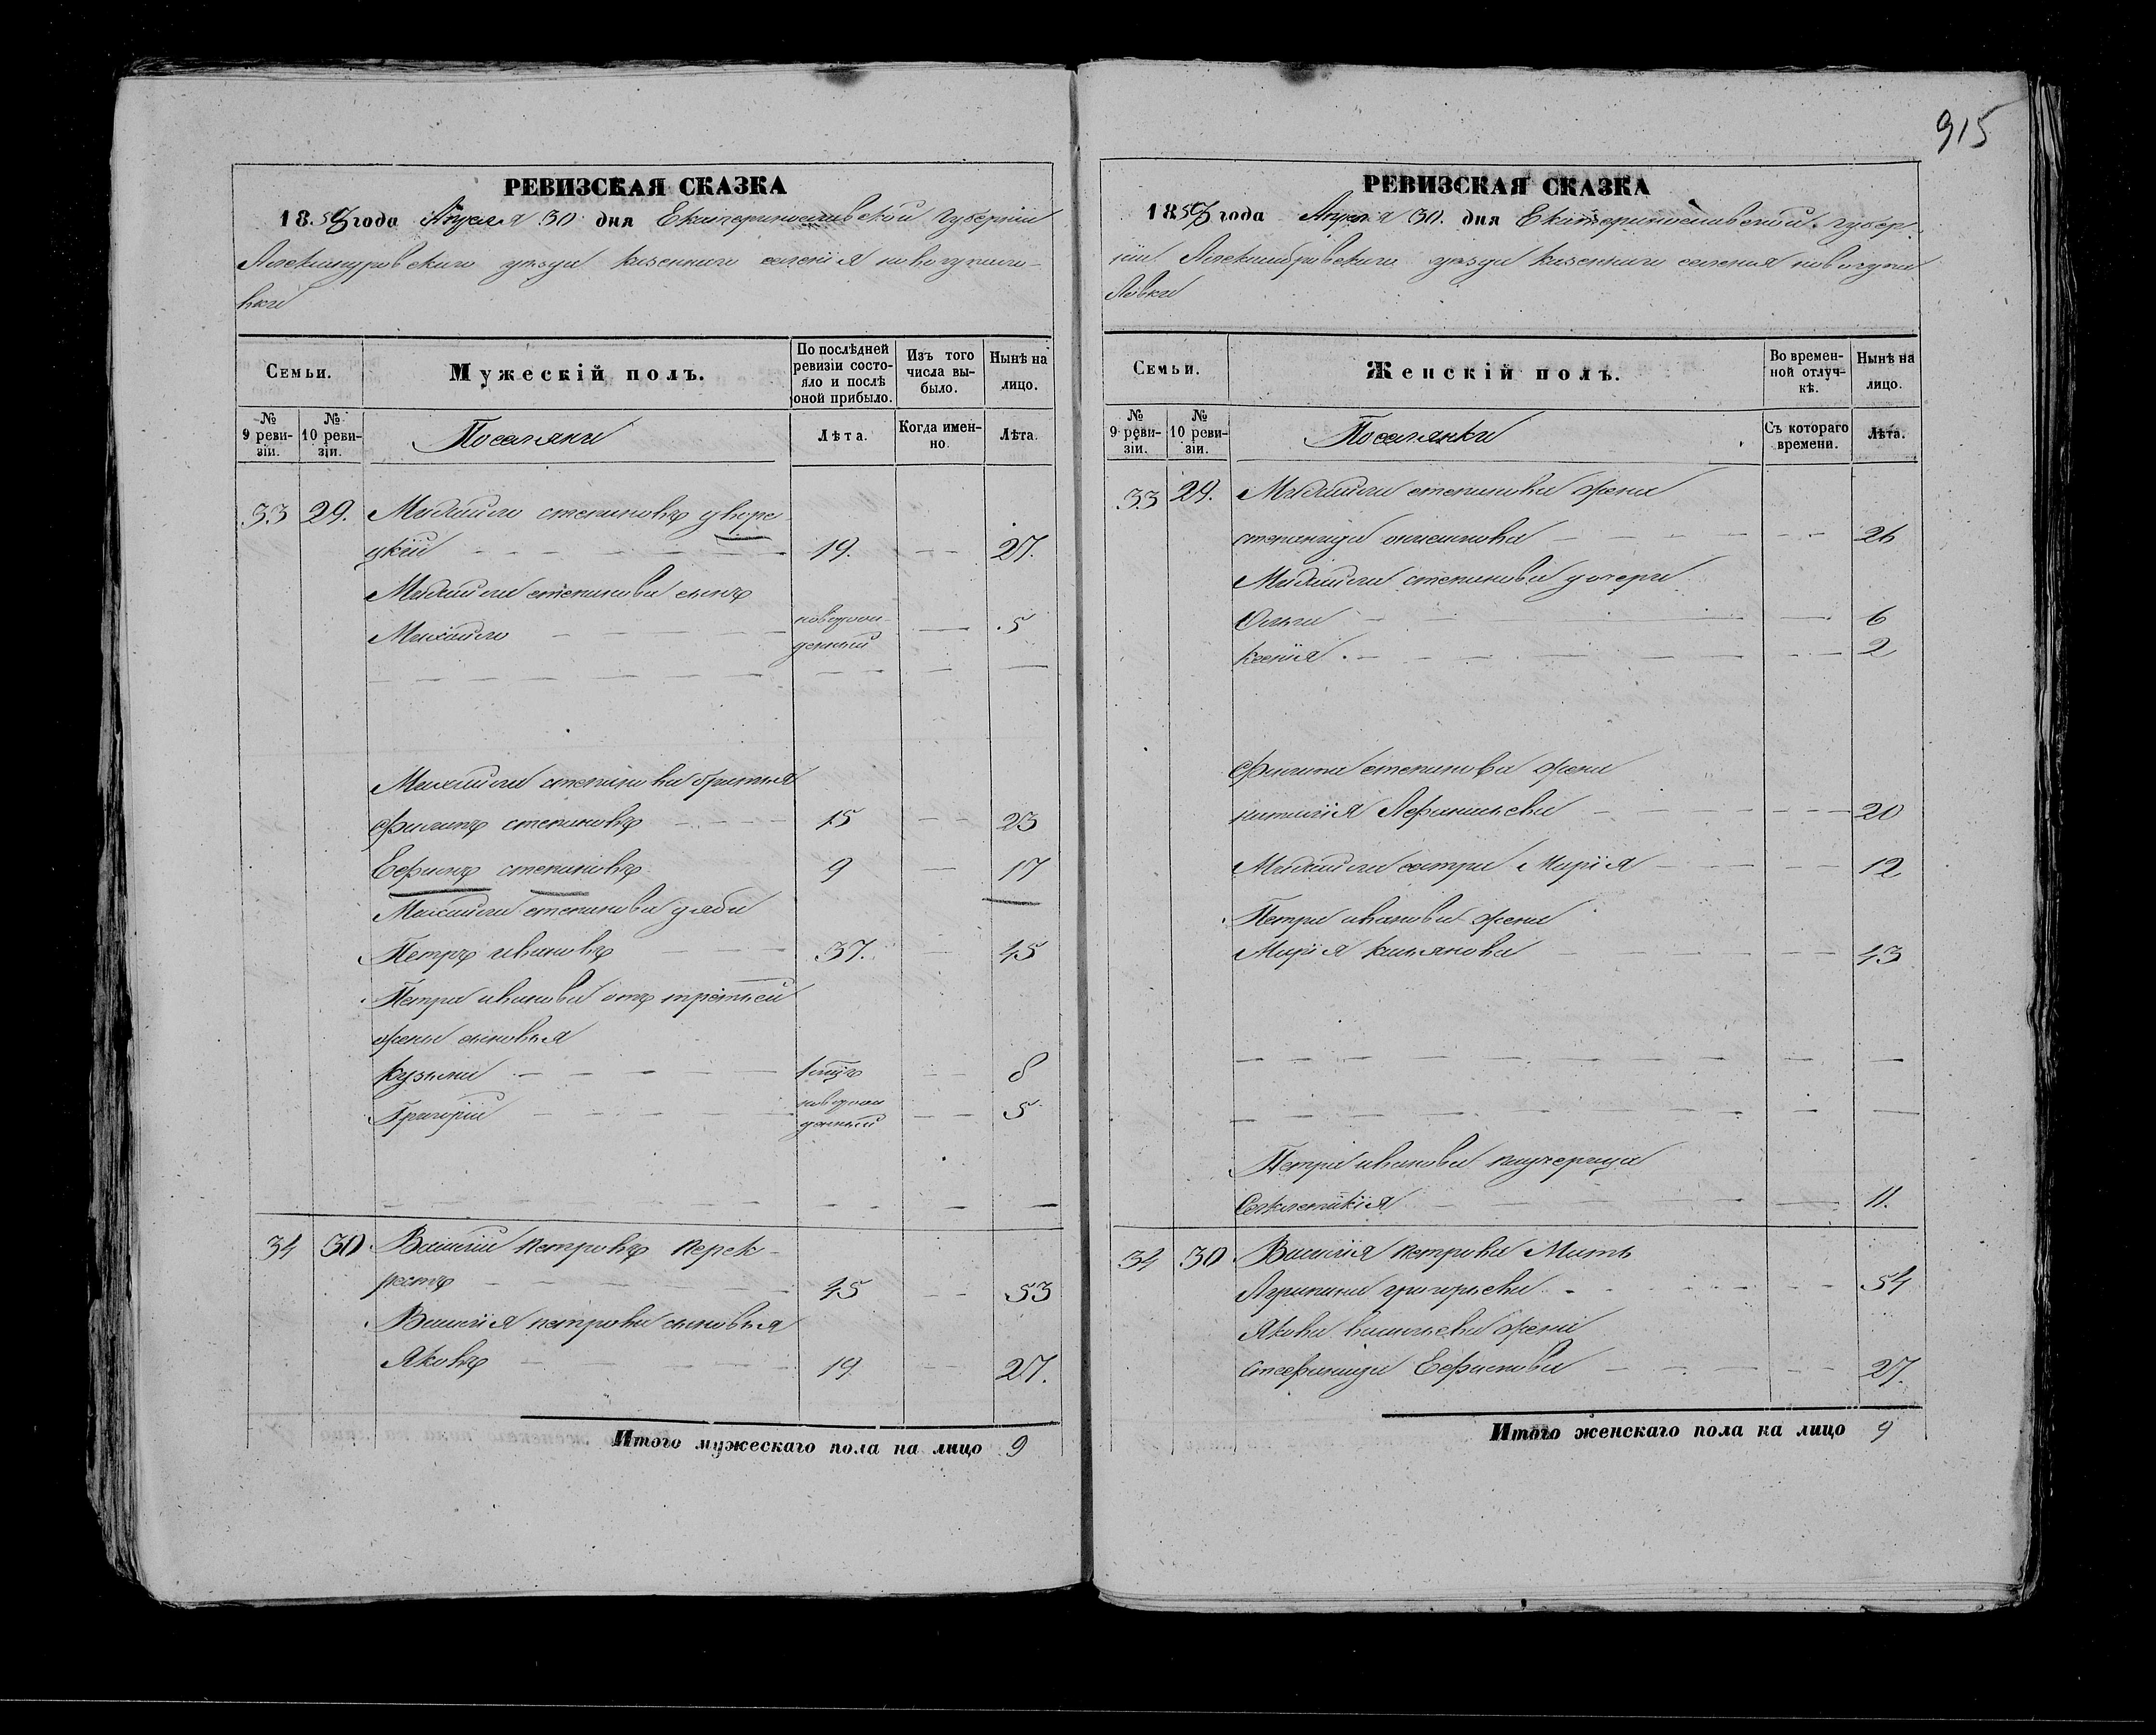 915
РЕВИЗСКАЯ СКАЗКА
1858 года Апреля 30 дня Екатеринославской губерніи
Александровскаго уезда казеннаго селенія новогупало
вки
Семьи.
Мужескій полъ.
По послѣдней ревизіи состояло и послѣ оной прибыло.
Изъ того числа выбыло.
Нынѣ на лицо.
№ 9 ревизіи.
№ 10 ревизіи.
Поселяне
Лѣта.
Когда именно.
Лѣта.
33 29. Михайло степановъ дворе
цкій 19. 27.
Михайла степанова сынъ
Михайло новорож
денный 5
Михайла степанова братья
Филипъ степановъ 15 23
Ефимъ степановъ 9 17
Михайла степанова дядя
Петръ ивановъ 37. 45
Петра иванова отъ третьей
жены сыновья
Кузьма 8
Григорій новорож
денный 5
34 30 Василій петровъ перек
рестъ 45 53
Василія петрова сыновья
Яковъ 19 27.
Итого мужескаго пола на лицо 9
РЕВИЗСКАЯ СКАЗКА
1858 года Апреля 30. дня Екатеринославской губер
ніи Александровскаго уезда казеннаго селенія новогупа
ловки
Семьи.
Женскій полъ.
Во временной отлучкѣ.
Нынѣ на лицо.
№ 9 ревизіи.
№ 10 ревизіи.
Поселянки
Съ котораго времени.
Лѣта.
33 29. Михайла степанова жена
степанида 26
Михайла степанова дочери
Ольга 6
Ксенія 2
Филипа степанова жена
наталія Афанасьева 20
Михайла сестра Марія 12
Петра иванова жена
Марія касьянова 43
Петра иванова падчерица
Секлетикія 11.
34 30 Василія петрова Мать
Агрипина григорьева 54
Якова васильева жена
стефанида Ефимова 27.
Итого женскаго пола на лицо 9